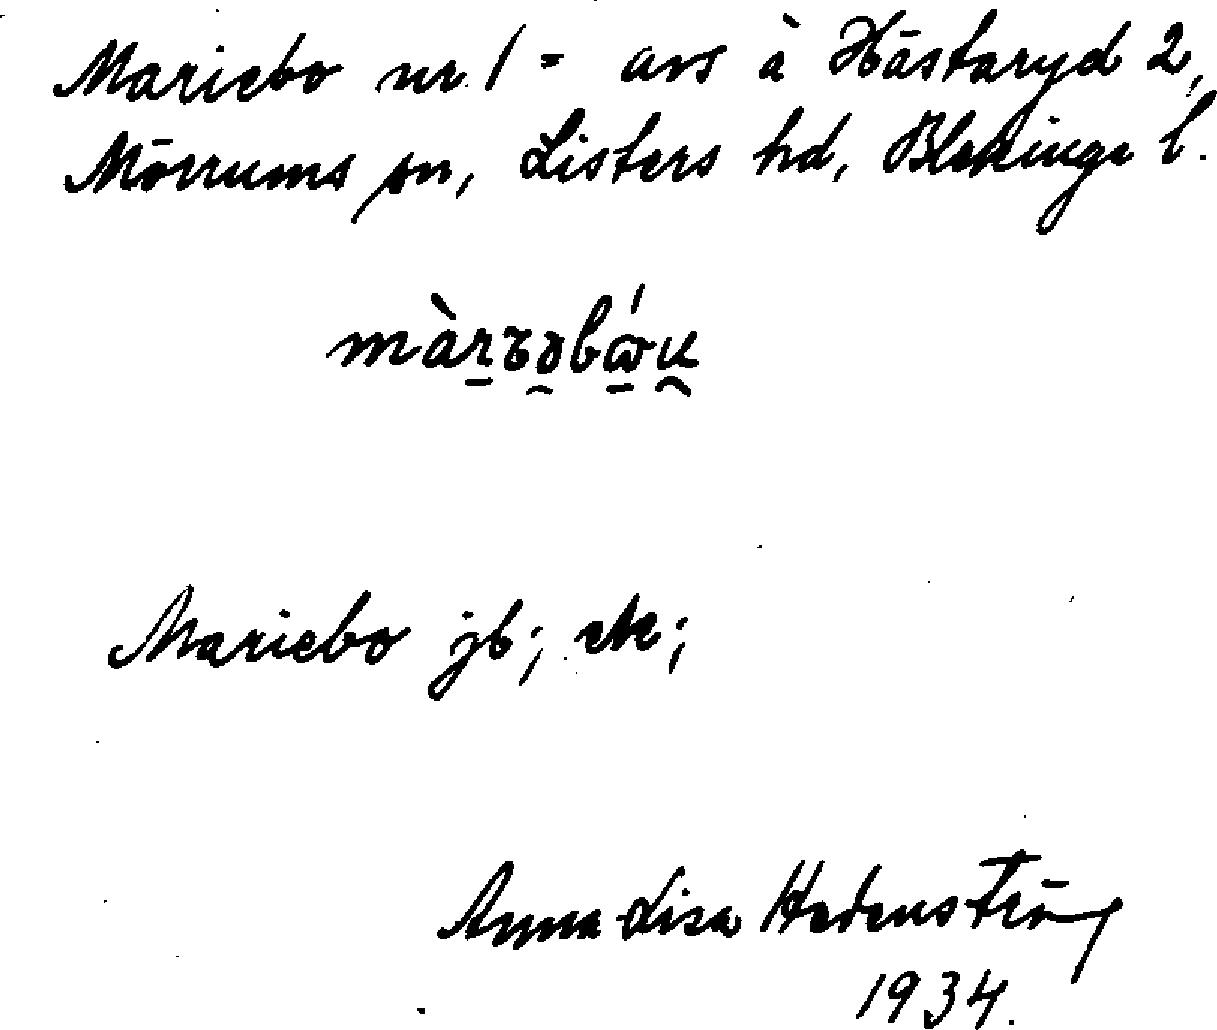 Mariebo nr 1 = avs å Hästaryd 2,
Mörrums sn, Listers hd, Blekinge l.
Mariebo jb; ek;
Anna-Lisa Hedenström
1934.